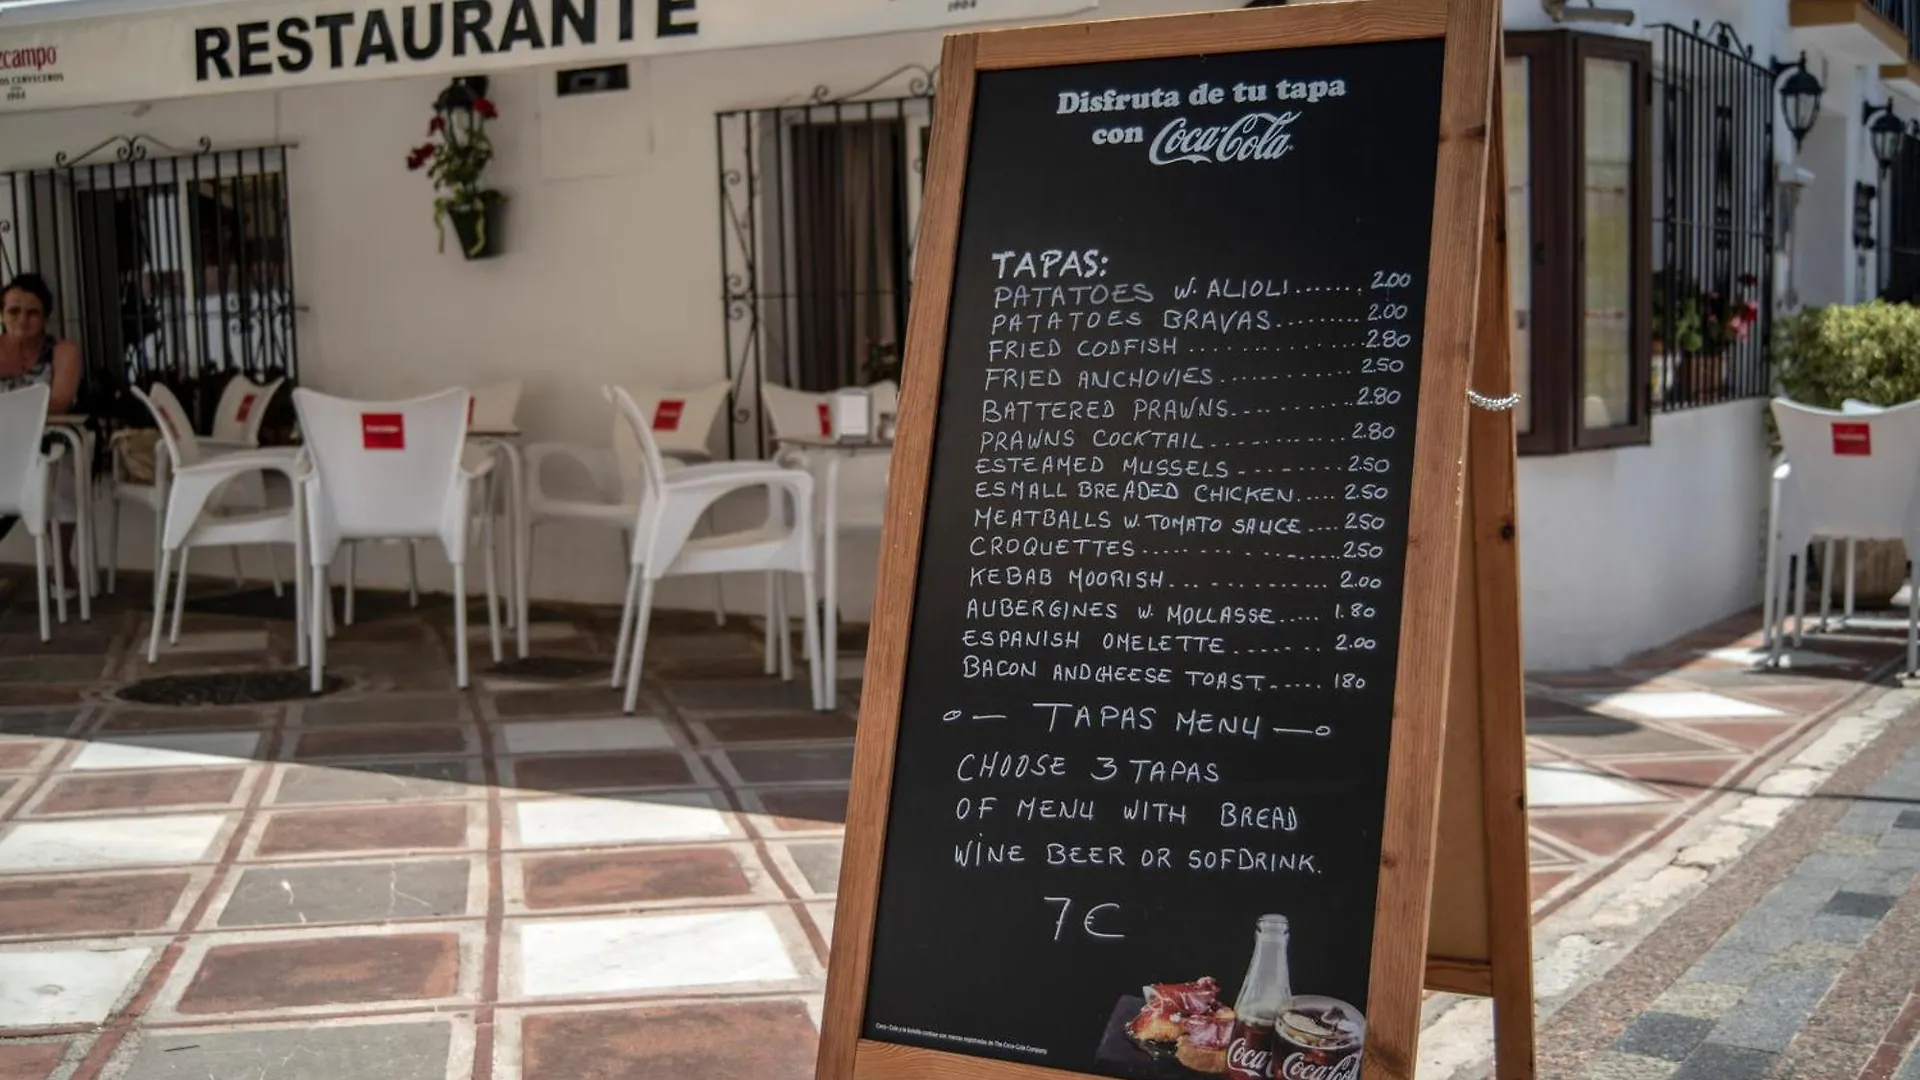 RESTAURANTE
zcampo
1904
1904
Disfruta de tu tapa
con Coca-Cola
TAPAS:
PATATOES W. ALIOLI....... 2.00
PATATOES BRAVAS......... 2.00
FRIED CODFISH .............. 2.80
FRIED ANCHOVIES............ 2.50
BATTERED PRAWNS.......... 2.80
PRAWNS COCKTAIL........... 2.80
ESTEAMED MUSSELS--------... 2.50
ESMALL BREADED CHICKEN..... 2.50
MEATBALLS W. TOMATO SAUCE.... 250
CROQUETTES................ 250
KEBAB MOORISH............. 2.00
AUBERGINES W. MOLLASSE..... 1.80
ESPANISH OMELETTE....... 2.00
BACON AND CHEESE TOAST...... 180
TAPAS MENU
CHOOSE 3 TAPAS
OF MENU WITH BREAD
WINE BEER OR SOFDRINK.
7€
Coca-Cola y la botella contour son marcas registradas de The Coca-Cola Company
Coca
Coca-Cola